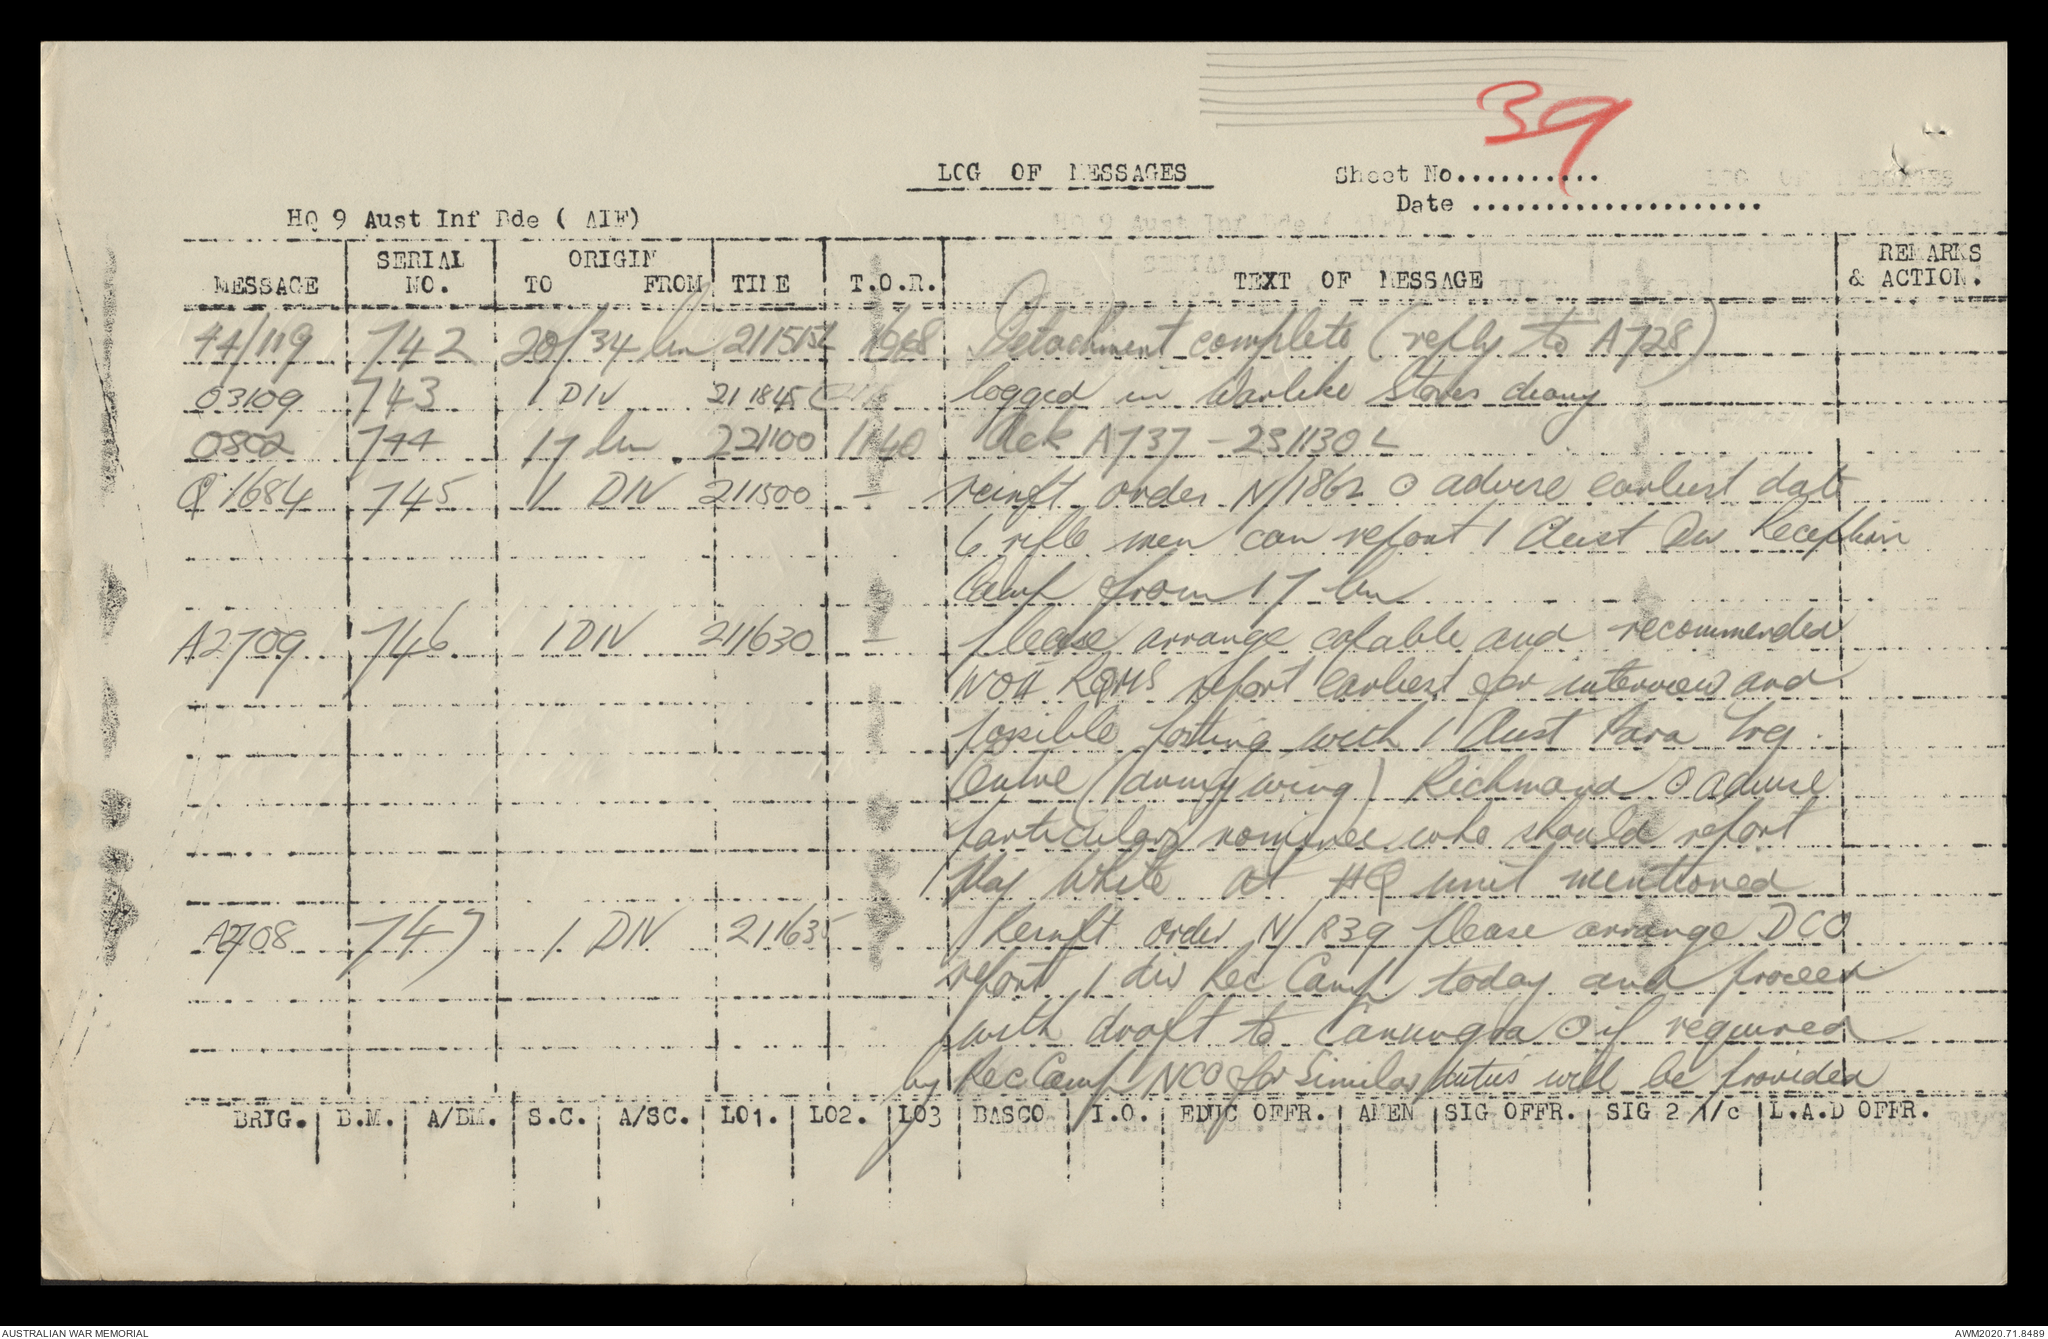 39
LOG OF MESSAGES
Sheet No..........
Date .....................
HQ 9 Aust Inf Bde ( AIF)
MESSAGE SERIAL NO. ORIGIN TO FROM TIME T.O.R. TEXT OF MESSAGE REMARKS & ACTION.
44/119 742 20/34 bn 211515L Detachment complete (reply to A728)
03109 743 1 DIV 211845 logged in Warlike Stores diary
0802 744 17 bn 221100 1140 Ack A737 - 231130 L
Q 1684 745 1 DIV 211500 - reinft order N/1862 ⊙ advise earliest date
6 rifle men can report 1 Aust Div Reception
Camp from 17 bn
A2709 746 1 DIV 211630 - please arrange capable and recommended
WOII RQMS report earliest for interview and
possible posting with 1 Aust Para Trg
Centre (army wing) Richmond ⊙ advise
particulars nominee who should report
Maj White at HQ unit mentioned
A2708 747 1 DIV 211635 Reinft order N/1839 please arrange DCO
report 1 div Rec Camp today and proceed
with draft to Canungra ⊙ if required
by Rec Camp NCO for similar duties will be provided
BRIG. B.M. A/BM. S.C. A/SC. LO1. LO2. LO3 BASCO I.O. EDUC OFFR. AMEN SIG OFFR. SIG 2 1/c L.A.D OFFR.
AUSTRALIAN WAR MEMORIAL
AWM2020.71.8489